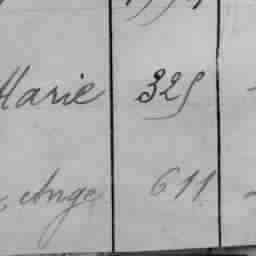 Marie 325
Ange 611